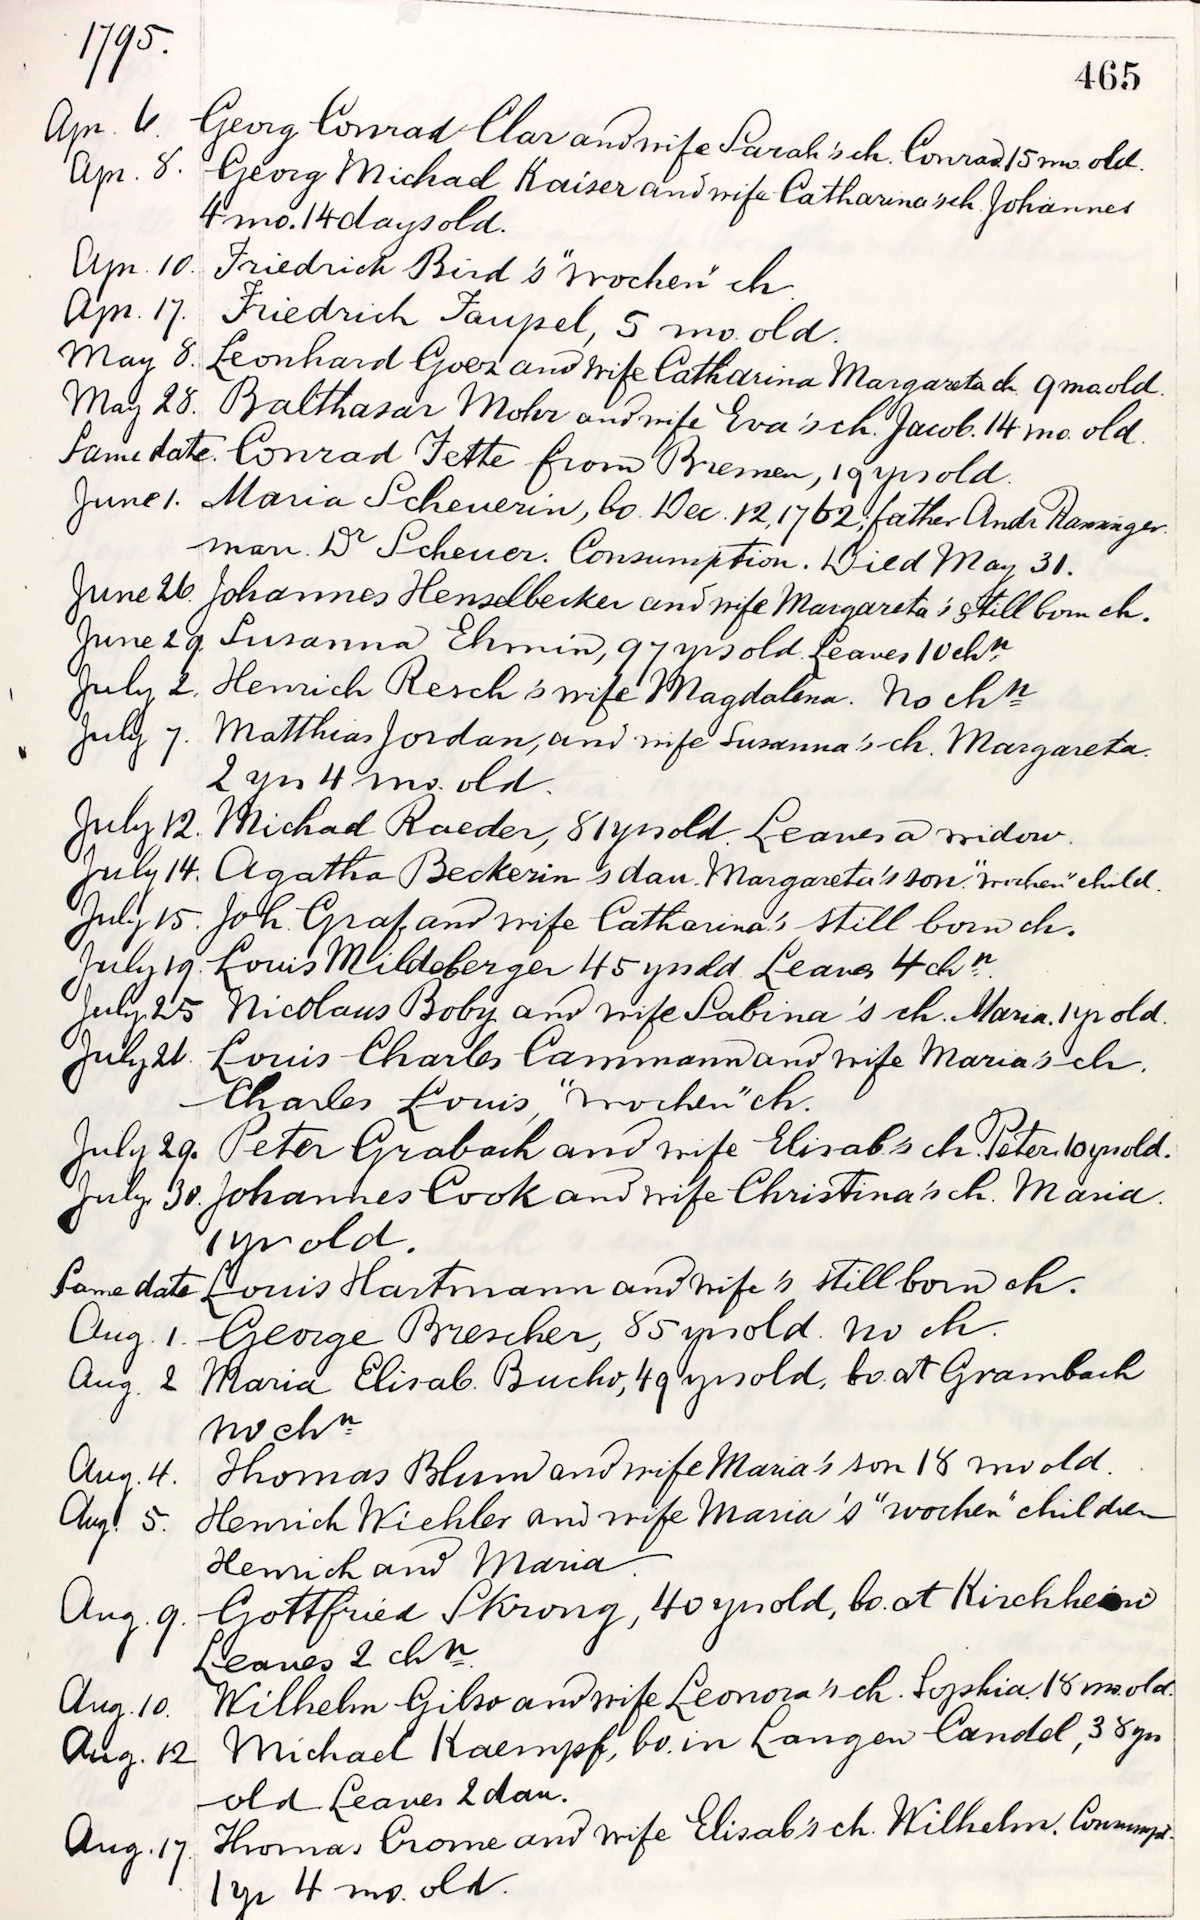 1795.
465
Apr. 6. Georg Conrad Clar and wife Sarah's ch. Conrad 15 mo. old.
Apr. 8. Georg Michael Kaiser and wife Catharina's ch. Johannes
4 mo. 14 days old.
Apr. 10. Friedrich Bird's "wochen" ch.
Apr. 17. Friedrich Faupel, 5 mo. old.
May 8. Leonhard Goez and wife Catharina Margareta ch. 9 mo. old.
May 28. Balthasar Mohr and wife Eva's ch. Jacob. 14 mo. old.
Same date. Conrad Fette from Bremen, 19 yrs old.
June 1. Maria Scheuerin, bo. Dec. 12, 1762, father Andr. Ranzinger.
marr. Dr Scheuer. Consumption. Died May 31.
June 26. Johannes Henselbecker and wife Margareta's still born ch.
June 29. Susanna Ehmin, 97 yrs old. Leaves 10 chn
July 2. Henrich Resch's wife Magdalena. No chn
July 7. Matthias Jordan, and wife Susanna's ch. Margareta.
2 yrs 4 mo. old.
July 12. Michael Raeder, 81 yrs old. Leaves a widow.
July 14. Agatha Beckerin's dau. Margareta's son. "wochen" child.
July 15. Joh. Graf and wife Catharina's still born ch.
July 19. Louis Mildeberger 45 yrs old. Leaves 4 chn.
July 25 Nicolaus Boby and wife Sabina's ch. Maria. 1 yr old.
July 26. Louis Charles Cammann and wife Maria's ch.
Charles Louis, "wochen" ch.
July 29. Peter Grabach and wife Elisab's ch. Peter. 10 yrs old.
July 30. Johannes Cook and wife Christina's ch. Maria.
1 yr old.
Same date Louis Hartmann and wife's still born ch.
Aug. 1. George Brescher, 85 yrs old. no ch.
Aug. 2 Maria Elisab. Bucho, 49 yrs old, bo. at Grambach
no chn
Aug. 4. Thomas Blum and wife Maria's son 18 mo old.
Aug. 5. Henrich Wiehler and wife Maria's "wochen" children
Henrich and Maria.
Aug. 9. Gottfried Skrong, 40 yrs old, bo. at Kirchheim
Leaves 2 chn.
Aug. 10. Wilhelm Gilso and wife Leonora's ch. Sophia. 18 mo. old.
Aug. 12 Michael Kaempf, bo. in Langen Candel, 38 yrs
old Leaves 2 dau.
Aug. 17 Thomas Crome and wife Elisab's ch. Wilhelm. Consumpt.
1 yr 4 mo. old.